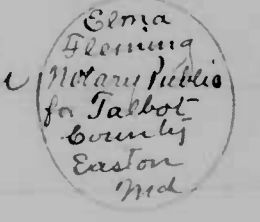 Elma
Fleming
Notary Public
for Talbot
County
Easton
Md.